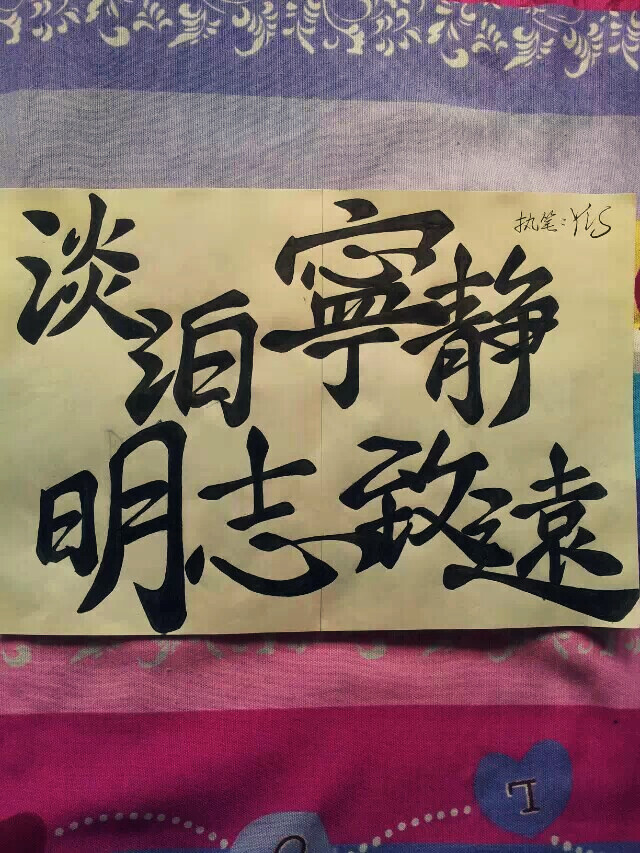 淡泊寧静
明志致遠
执笔：